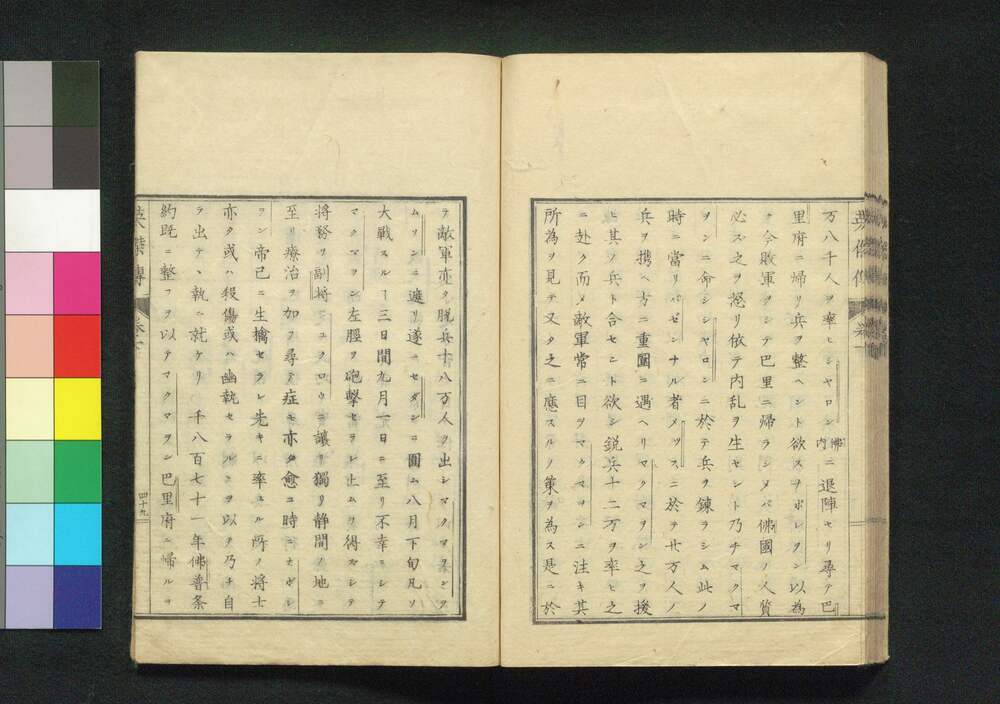 万八千人ヲ率ヒシヤロン佛内ニ退陣セリ尋テ巴
里府ニ帰リ兵ヲ整ヘント欲スナポレヲン以為
ク今敗軍ヲシテ巴里ニ帰ラシメバ佛國ノ人質
必ス之ヲ怒リ依テ内乱ヲ生セント乃チマクマ
ヲンニ命シシヤロンニ於テ兵ヲ錬ラシム此ノ
時ニ當リバゼンナル者メッスニ於テ廿万人ノ
兵ヲ携ヘ方ニ重圍ニ遇ヘリマクマヲン之ヲ援
ヒ其ノ兵ト合セント欲シ鋭兵十二万ヲ率ヒ之
ニ赴ク而メ敵軍常ニ目ヲマクマヲンニ注キ其
所為ヲ見テ又タ之ニ應スルノ策ヲ為ス是ニ於
テ敵軍亦タ脱兵十八万人ヲ出シマクマヲンヲ
ムソンニ遮リ遂ニセダンニ圍ム八月下旬凡ソ
大戰スルヿ三日間九月一日ニ至リ不幸ニシテ
マクマヲン左脛ヲ砲撃セラレ止ムヲ得スシテ
將務ヲ副将ジュクロウニ讓リ獨リ静間ノ地ニ
至リ療治ヲ加フ尋テ症モ亦タ愈ユ時ニナポレ
ヲン帝已ニ生擒セラレ先キニ率ユル所ノ将士
亦タ或ハ殺傷或ハ幽執セラルヽヲ以テ乃チ自
ラ出テヽ執ニ就ケリ一千八百七十一年佛普条
約既ニ整フヲ以テマクマヲン巴里府ニ帰ルヿ
英傑傳
四十九